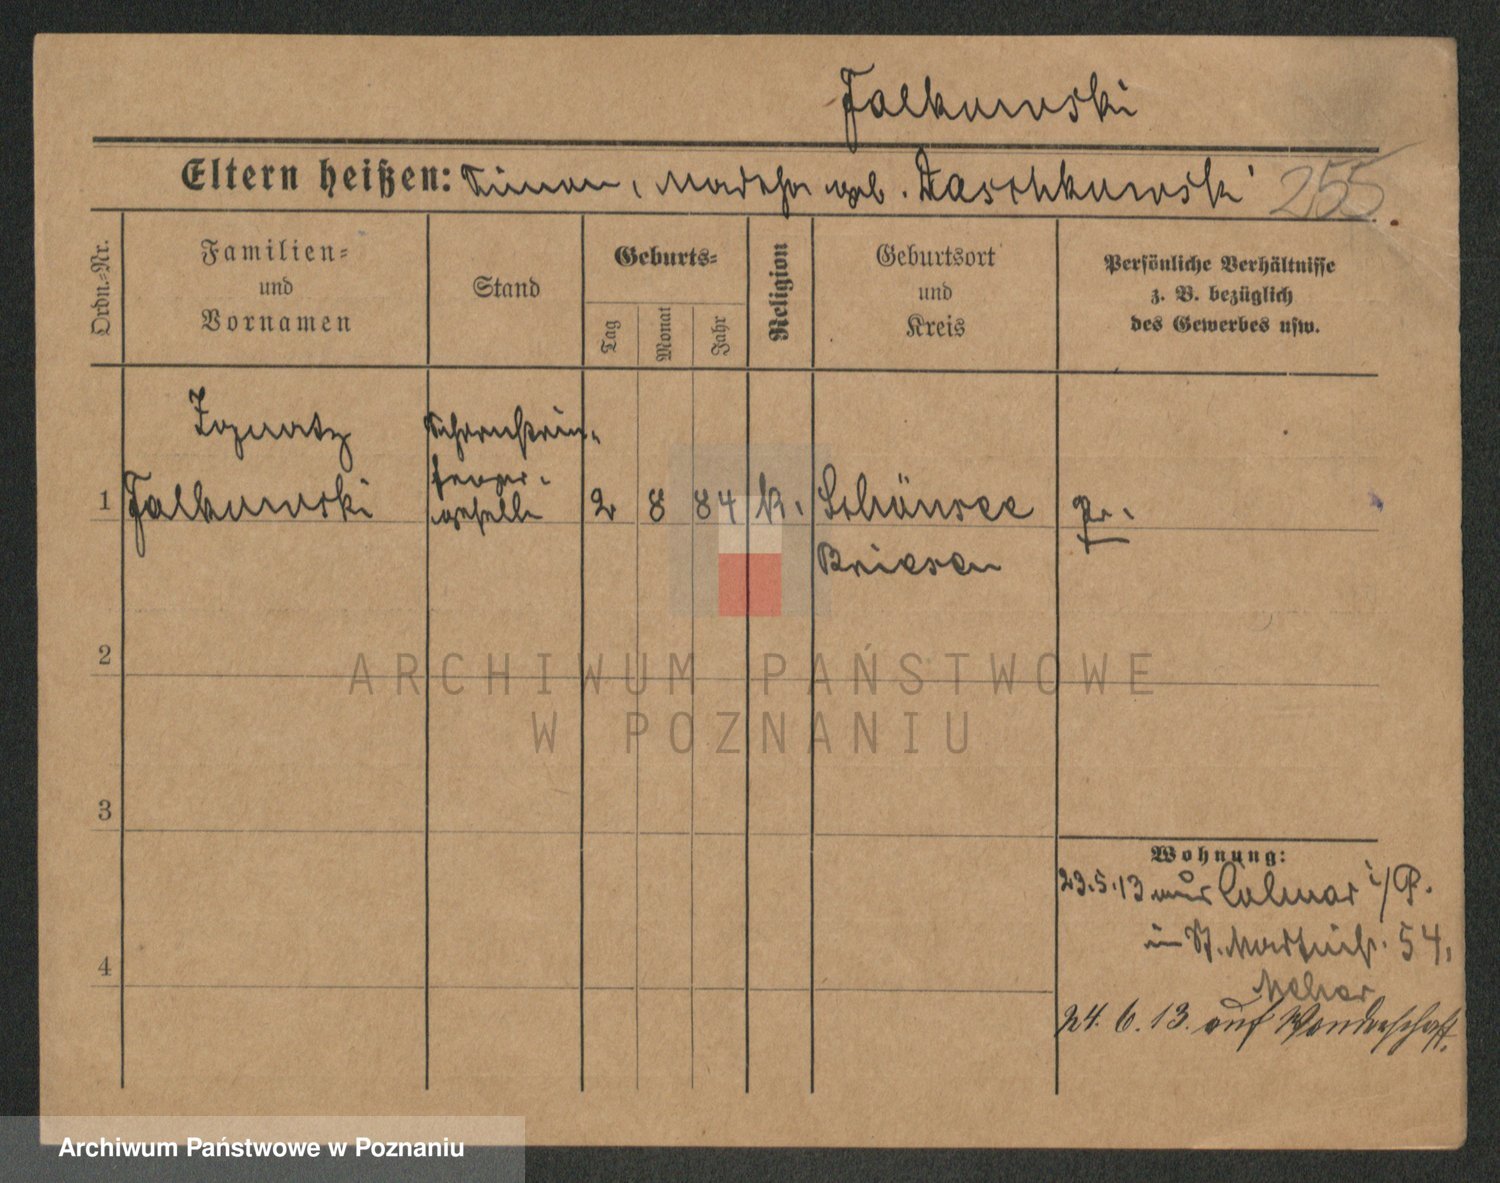 Falkowski
Eltern heißen: Simon, Martha geb. Daschkowski 255
Ordn.-Nr.
Familien-
und
Vornamen
Stand
Geburts-
Tag
Monat
Jahr
Religion
Geburtsort
und
Kreis
Persönliche Verhältnisse
z. B. bezüglich
des Gewerbes usw.
Ignatz
Schornstein-
feger-
1 Falkowski geselle 2 8 84 k. Schönsee Pr.
Briesen
2
ARCHIWUM PAŃSTWOWE
W POZNANIU
3
Wohnung:
23.5.13 aus Colmar i/P.
in St. Martinstr. 54,
4
24.6.13. auf Wanderschaft.
Archiwum Państwowe w Poznaniu